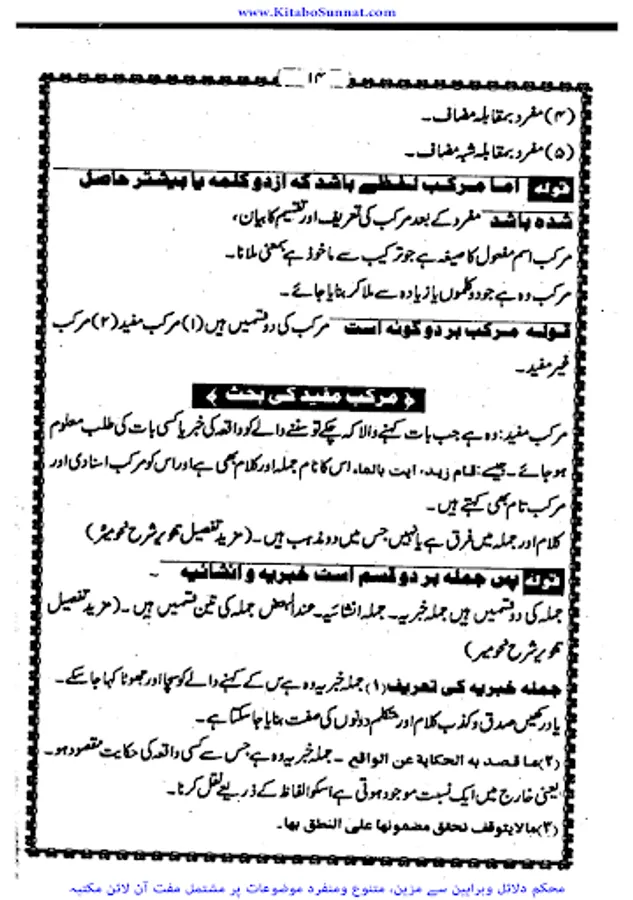 www.KitaboSunnat.com
۱۴
(۴) مفرد بمقابلہ مضاف۔
(۵) مفرد بمقابلہ شبہ مضاف۔
قولہ اما مرکب لفظے باشد کہ ازدو کلمہ یا بیشتر حاصل
شدہ باشد مفرد کے بعد مرکب کی تعریف اور تقسیم کا بیان،
مرکب اسم مفعول کا صیغہ ہے جو ترکیب سے ماخوذ ہے بمعنی ملانا۔
مرکب وہ ہے جو دو کلموں یا زیادہ سے ملا کر بنایا جائے۔
قولہ مرکب بر دو گونہ است مرکب کی دو قسمیں ہیں (۱) مرکب مفید (۲) مرکب
غیر مفید۔
﴿ مرکب مفید کی بحث ﴾
مرکب مفید: وہ ہے جب بات کہنے والا کہہ چکے تو سننے والے کو واقعہ کی خبر یا کسی بات کی طلب معلوم
ہو جائے۔ جیسے: قام زید، ایت بالماء، اس کا نام جملہ اور کلام بھی ہے اور اس کو مرکب اسنادی اور
مرکب تام بھی کہتے ہیں۔
کلام اور جملہ میں فرق ہے یا نہیں جس میں دو مذہب ہیں۔ (مزید تفصیل تنویر شرح نحومیر)
قولہ پس جملہ بر دو قسم است خبریہ و انشائیہ ۔
جملہ کی دو قسمیں ہیں جملہ خبریہ۔ جملہ انشائیہ۔ عند البعض جملہ کی تین قسمیں ہیں۔ (مزید تفصیل
تنویر شرح نحومیر)
جملہ خبریہ کی تعریف (۱) جملہ خبریہ وہ ہے جس کے کہنے والے کو سچا اور جھوٹا کہا جا سکے۔
یاد رکھیں صدق و کذب کلام اور متکلم دونوں کی صفت بنایا جا سکتا ہے۔
(۲) ما قصد به الحكاية عن الواقع ۔ جملہ خبریہ وہ ہے جس سے کسی واقعہ کی حکایت مقصود ہو۔
یعنی خارج میں ایک نسبت موجود ہوتی ہے اسکو الفاظ کے ذریعے نقل کرنا۔
(۳) مالایتوقف تحقق مضمونها على النطق بها۔
محکم دلائل وبراہین سے مزین، متنوع ومنفرد موضوعات پر مشتمل مفت آن لائن مکتبہ